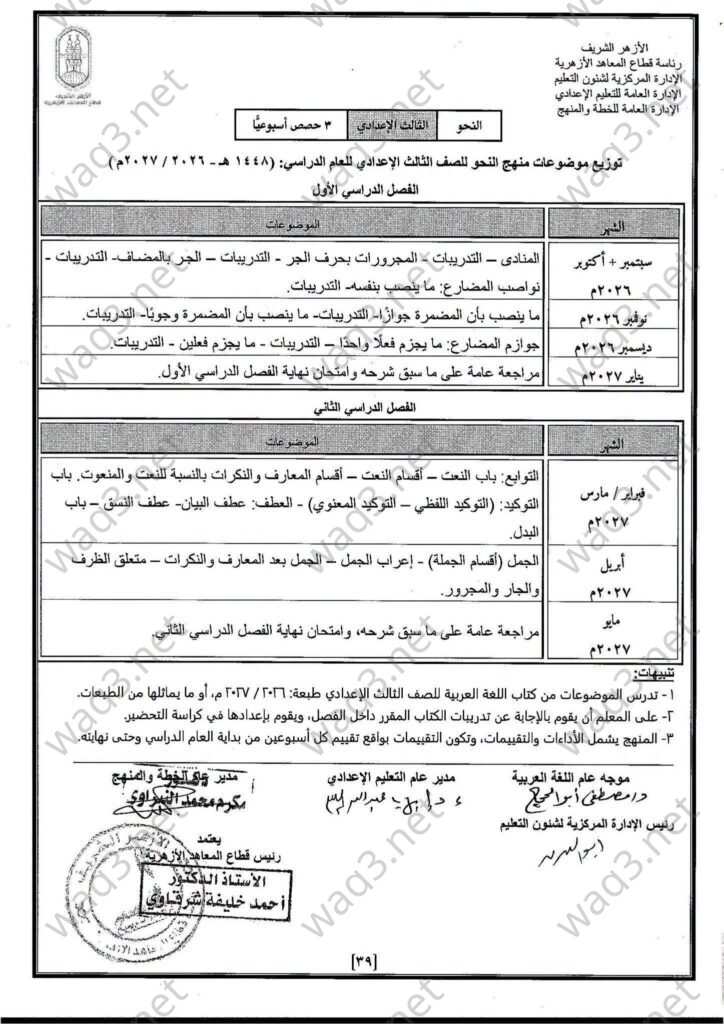 الأزهر الشريف
رئاسة قطاع المعاهد الأزهرية
الإدارة المركزية لشئون التعليم
الإدارة العامة للتعليم الإعدادي
الإدارة العامة للخطة والمنهج
الأزهر الشريف
قطاع المعاهد الأزهرية
النحو
الثالث الإعدادي
٣ حصص أسبوعيًّا
توزيع موضوعات منهج النحو للصف الثالث الإعدادي للعام الدراسي: (١٤٤٨ هـ - ٢٠٢٦ / ٢٠٢٧م)
الفصل الدراسي الأول
الشهر
الموضوعات
سبتمبر + أكتوبر
٢٠٢٦م
المنادى – التدريبات - المجرورات بحرف الجر - التدريبات – الجر بالمضاف- التدريبات -
نواصب المضارع: ما ينصب بنفسه- التدريبات.
نوفمبر ٢٠٢٦م
ما ينصب بأن المضمرة جوازًا- التدريبات- ما ينصب بأن المضمرة وجوبًا- التدريبات.
ديسمبر ٢٠٢٦م
جوازم المضارع: ما يجزم فعلًا واحدًا – التدريبات - ما يجزم فعلين - التدريبات.
يناير ٢٠٢٧م
مراجعة عامة على ما سبق شرحه وامتحان نهاية الفصل الدراسي الأول.
الفصل الدراسي الثاني
الشهر
الموضوعات
فبراير / مارس
٢٠٢٧م
التوابع: باب النعت – أقسام النعت – أقسام المعارف والنكرات بالنسبة للنعت والمنعوت. باب
التوكيد: (التوكيد اللفظي – التوكيد المعنوي) - العطف: عطف البيان- عطف النسق – باب
البدل.
أبريل
٢٠٢٧م
الجمل (أقسام الجملة) - إعراب الجمل – الجمل بعد المعارف والنكرات – متعلق الظرف
والجار والمجرور.
مايو
٢٠٢٧م
مراجعة عامة على ما سبق شرحه، وامتحان نهاية الفصل الدراسي الثاني.
تنبيهات:
١- تدرس الموضوعات من كتاب اللغة العربية للصف الثالث الإعدادي طبعة: ٢٠٢٦ / ٢٠٢٧ م، أو ما يماثلها من الطبعات.
٢- على المعلم أن يقوم بالإجابة عن تدريبات الكتاب المقرر داخل الفصل، ويقوم بإعدادها في كراسة التحضير.
٣- المنهج يشمل الأداءات والتقييمات، وتكون التقييمات بواقع تقييم كل أسبوعين من بداية العام الدراسي وحتى نهايته.
موجه عام اللغة العربية
مدير عام التعليم الإعدادي
مدير عام الخطة والمنهج
رئيس الإدارة المركزية لشئون التعليم
يعتمد
رئيس قطاع المعاهد الأزهرية
الأستاذ الدكتور
أحمد خليفة شرقاوي
[٣٩]
waq3.net